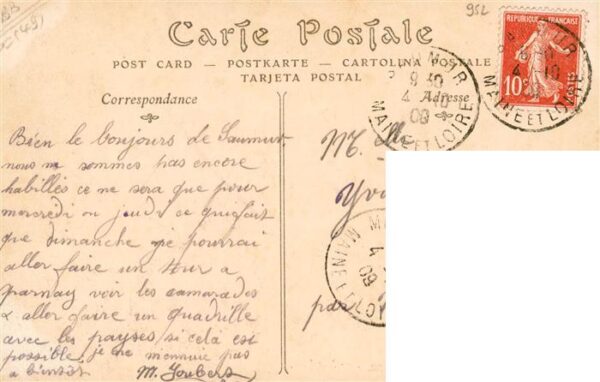 952
Carte Postale
POST CARD — POSTKARTE — CARTOLINA POSTALE
TARJETA POSTAL
REPUBLIQUE FRANÇAISE
10c
POSTES
MAINE ET LOIRE
4 - 10
09
9 10
4 10
09
MAINE ET LOIRE
Correspondance
Adresse
Bien le bonjours de Saumur
nous ne sommes pas encore
habillés ce ne sera que pour
mercredi ou jeudi ce qui fait
que dimanche je pourrai
aller faire un tour a
Parnay voir les camarades
& aller faire un quadrille
avec les payses si cela est
possible. je ne mennuie pas
a bientôt M. Joubert
M. elle
Yvo
par
MAINE ET LOI
4
09